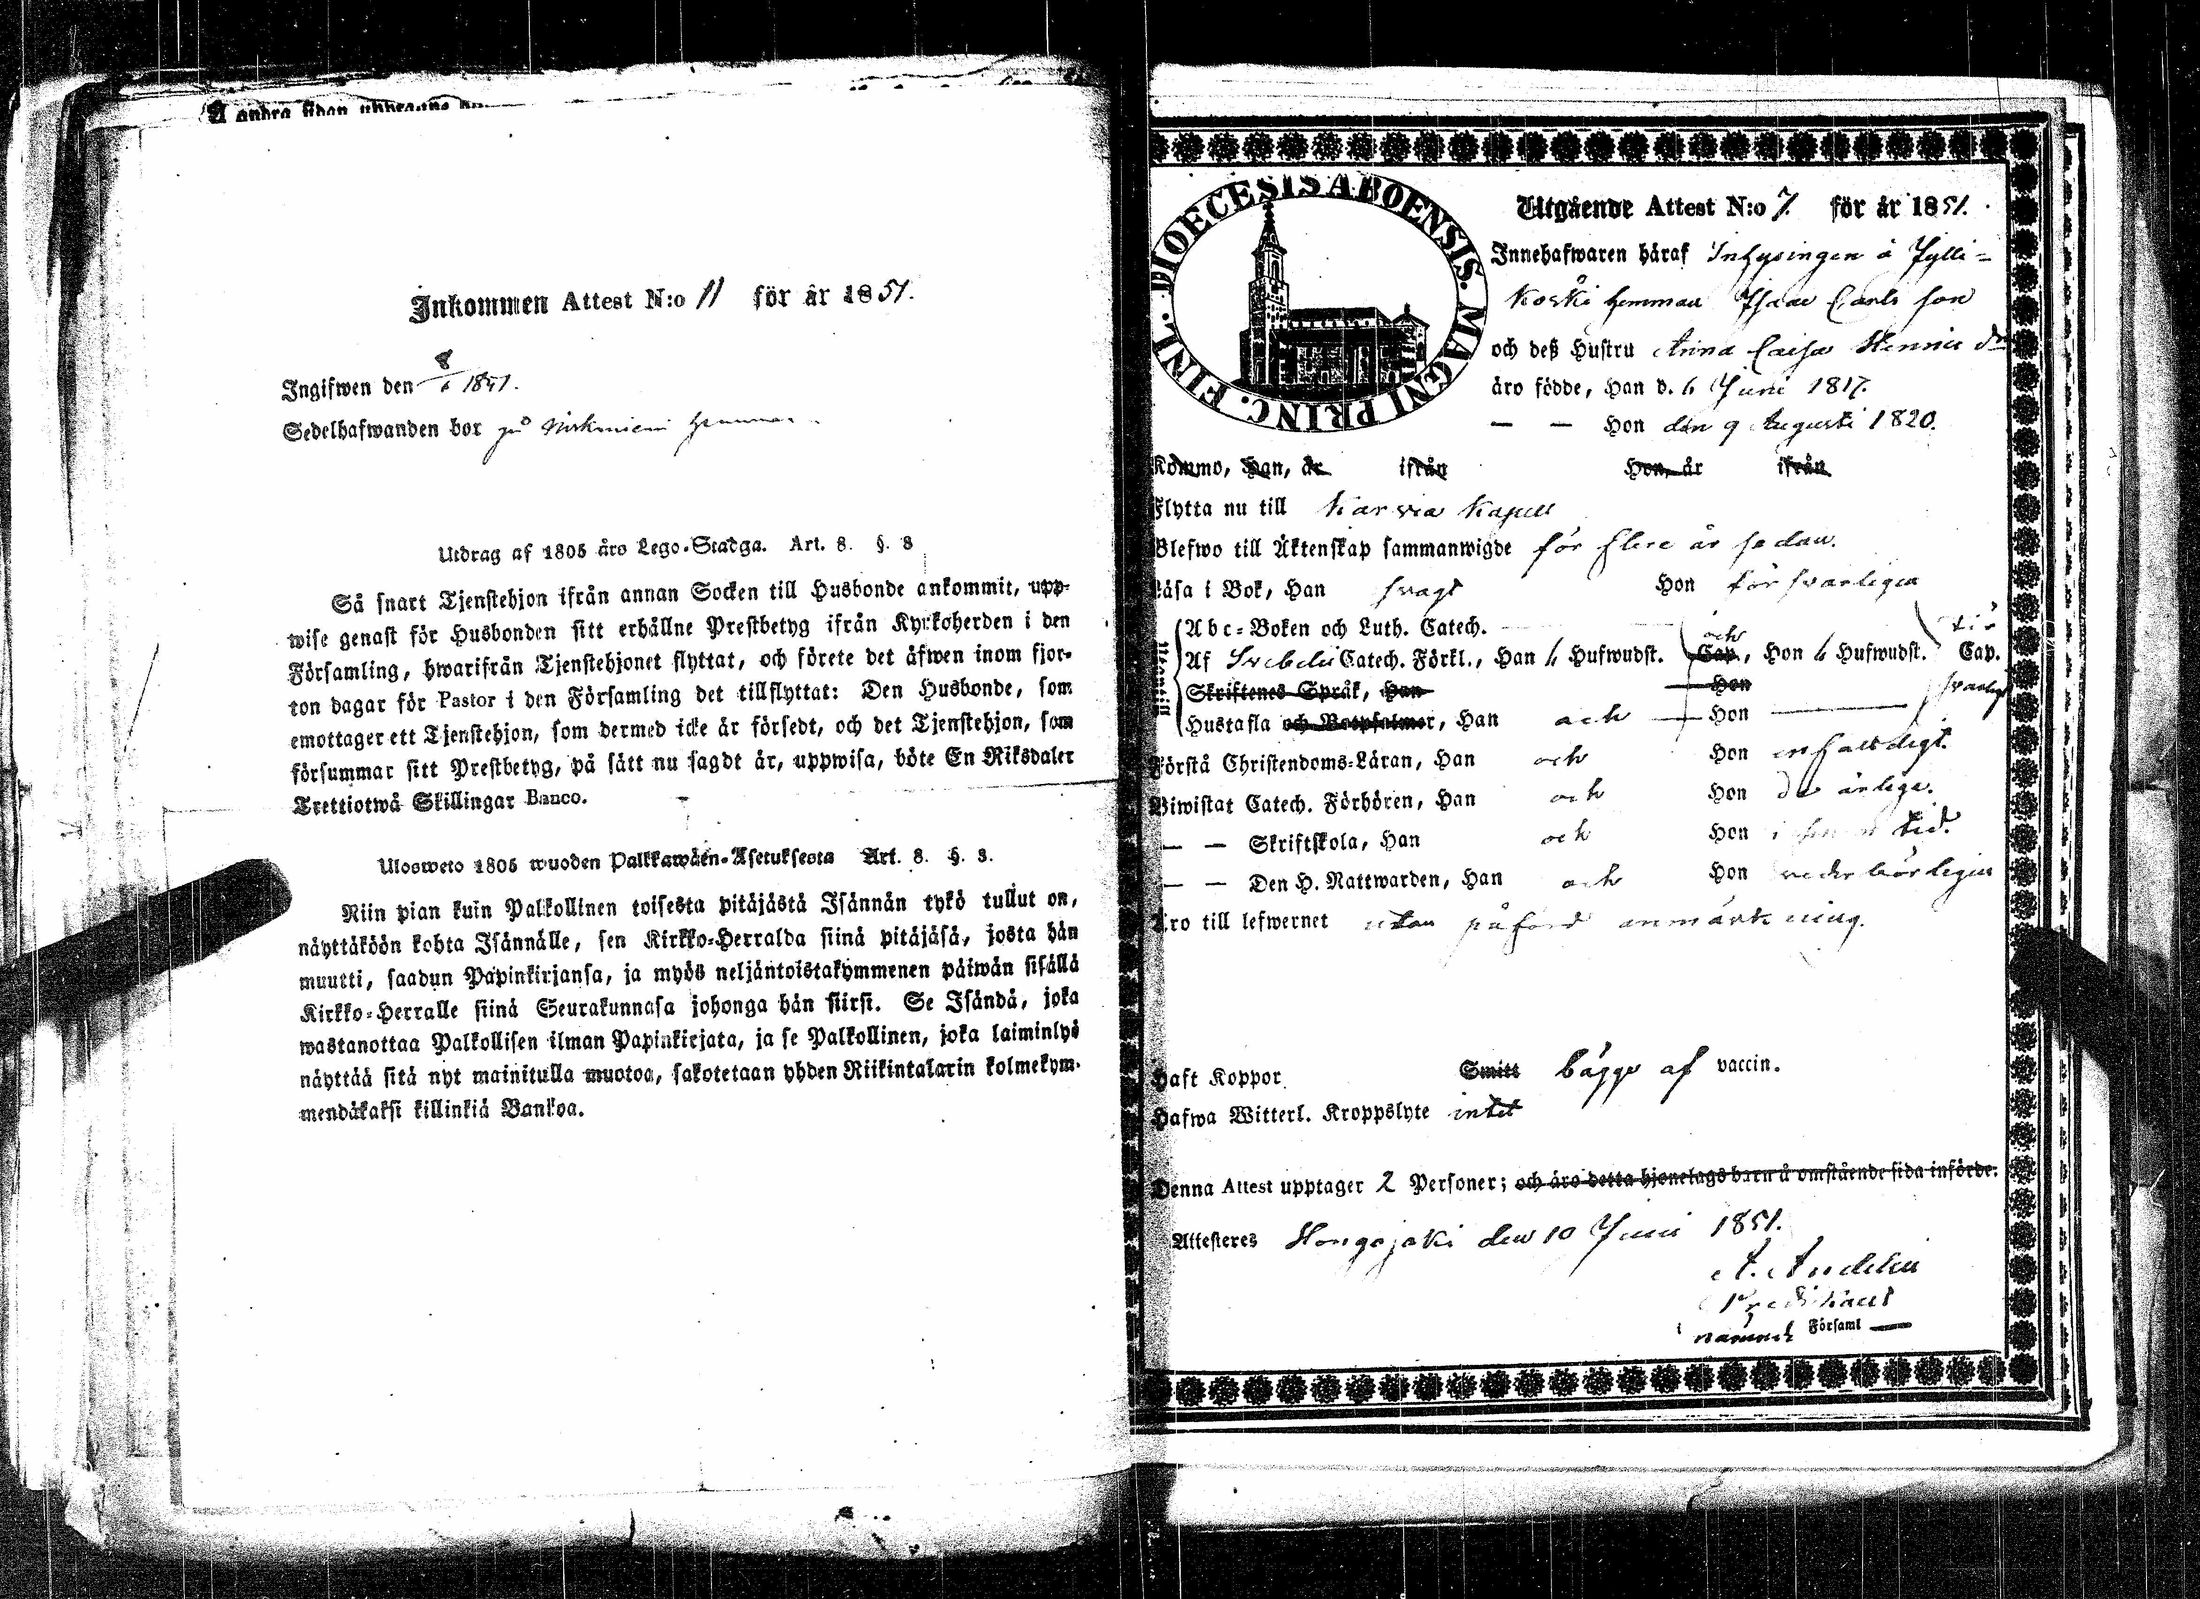 Å andra sidan uppragne
Inkommen Attest N:o 11 för år 1851.
Ingifwen den 8/6 1851.
Sedelhafwanden bor på hemman
Utdrag af 1805 års Lego-Stadga. Art. 8. §. 8
Så snart Tjenstehjon ifrån annan Socken till Husbonde ankommit, upp-
wise genast för Husbonden sitt erhållne Prestbetyg ifrån Kyrkoherden i den
Församling, hwarifrån Tjenstehjonet flyttat, och förete det äfwen inom fjor-
ton dagar för Pastor i den Församling det tillflyttat: Den Husbonde, som
emottager ett Tjenstehjon, som dermed icke är försedt, och det Tjenstehjon, som
försummar sitt Prestbetyg, på sätt nu sagdt är, uppwisa, böte En Riksdaler
Trettiotwå Skillingar Banco.
Ulosweto 1805 wuoden Palkkawäen-Asetuksesta Art. 8. §. 8.
Niin pian kuin Palkollinen toisesta pitäjästä Isännän tykö tullut on,
näyttäköön kohta Isännälle, sen Kirkko-Herralda siinä pitäjäsä, josta hän
muutti, saadun Papinkirjansa, ja myös neljäntoistakymmenen päiwän sisällä
Kirkko-Herralle siinä Seurakunnasa johonga hän siirsi. Se Isändä, joka
wastanottaa Palkollisen ilman Papinkirjata, ja se Palkollinen, joka laiminlyö
näyttää sitä nyt mainitulla muotoa, sakotetaan yhden Riikintalarin kolmekym-
mendäkaksi killinkiä Bankoa.
DIOECESIS ABOENSIS. MAGNI PRINC. FINL.
Utgående Attest N:o 7. för år 1851.
Innehafwaren häraf Inhysingen å Jylli-
koski hemman Isaac Carls son
och deß Hustru Anna Caisa Henrics dr
äro födde, Han d. 6 Juni 1817.
— — Hon den 9 Augusti 1820.
Kommo, Han, år ifrån Hon, år ifrån
Flytta nu till Karvia Kapell
Blefwo till Äktenskap sammanwigde för flere år sedan.
Läsa i Bok, Han svagt Hon försvarligen
Abc-Boken och Luth. Catech.
Af Svebelii Catech. Förkl., Han 6 Hufwudst. Cap. och, Hon 6 Hufwudst. Cap. för
Skriftenes Språk, Han — Hon svarligt
Hustafla och Botpsalmer, Han och Hon
Förstå Christendoms-Läran, Han och Hon enfaldigt.
Biwistat Catech. Förhören, Han och Hon de årliga.
— — Skriftskola, Han och Hon i sinom tid.
— — Den H. Nattwarden, Han och Hon vederbörligen
Äro till lefwernet utan påförd anmärkning.
Haft Koppor Smitt bägge af vaccin.
Hafwa Witterl. Kroppslyte intet
Denna Attest upptager 2 Personer; och äro detta hjonelags barn å omstående sida införde.
Attesteres Hongojoki den 10 Juni 1851.
A. Andelin
Predikant
i nämnde Församl